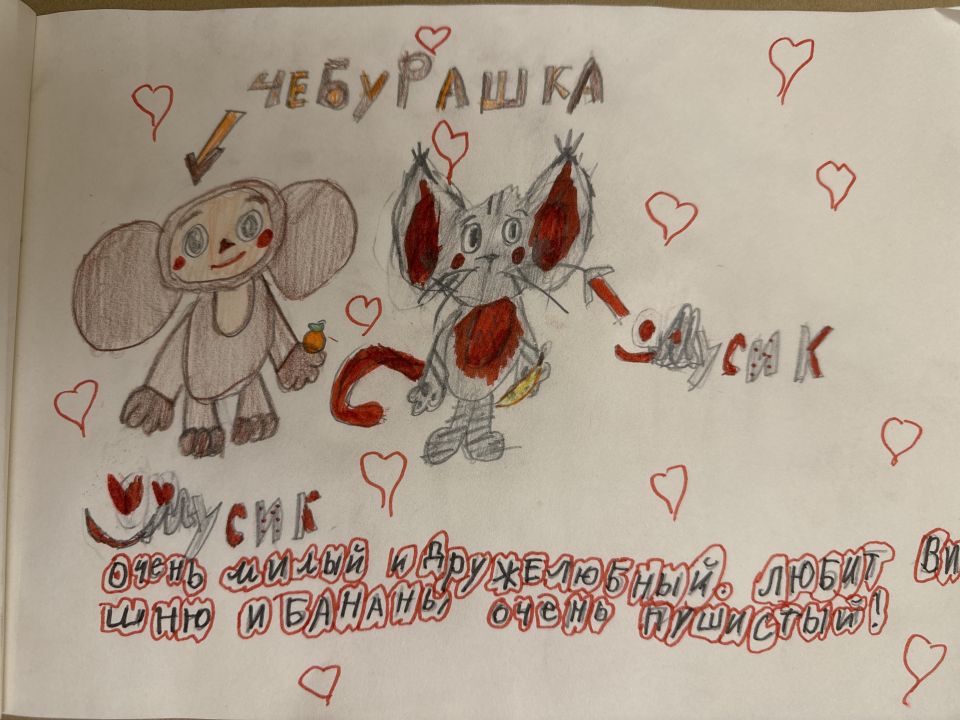 ЧЕБУРАШКА
мусик
мусик
очень милый и дружелюбный. любит ви
шню и бананы очень пушистый!